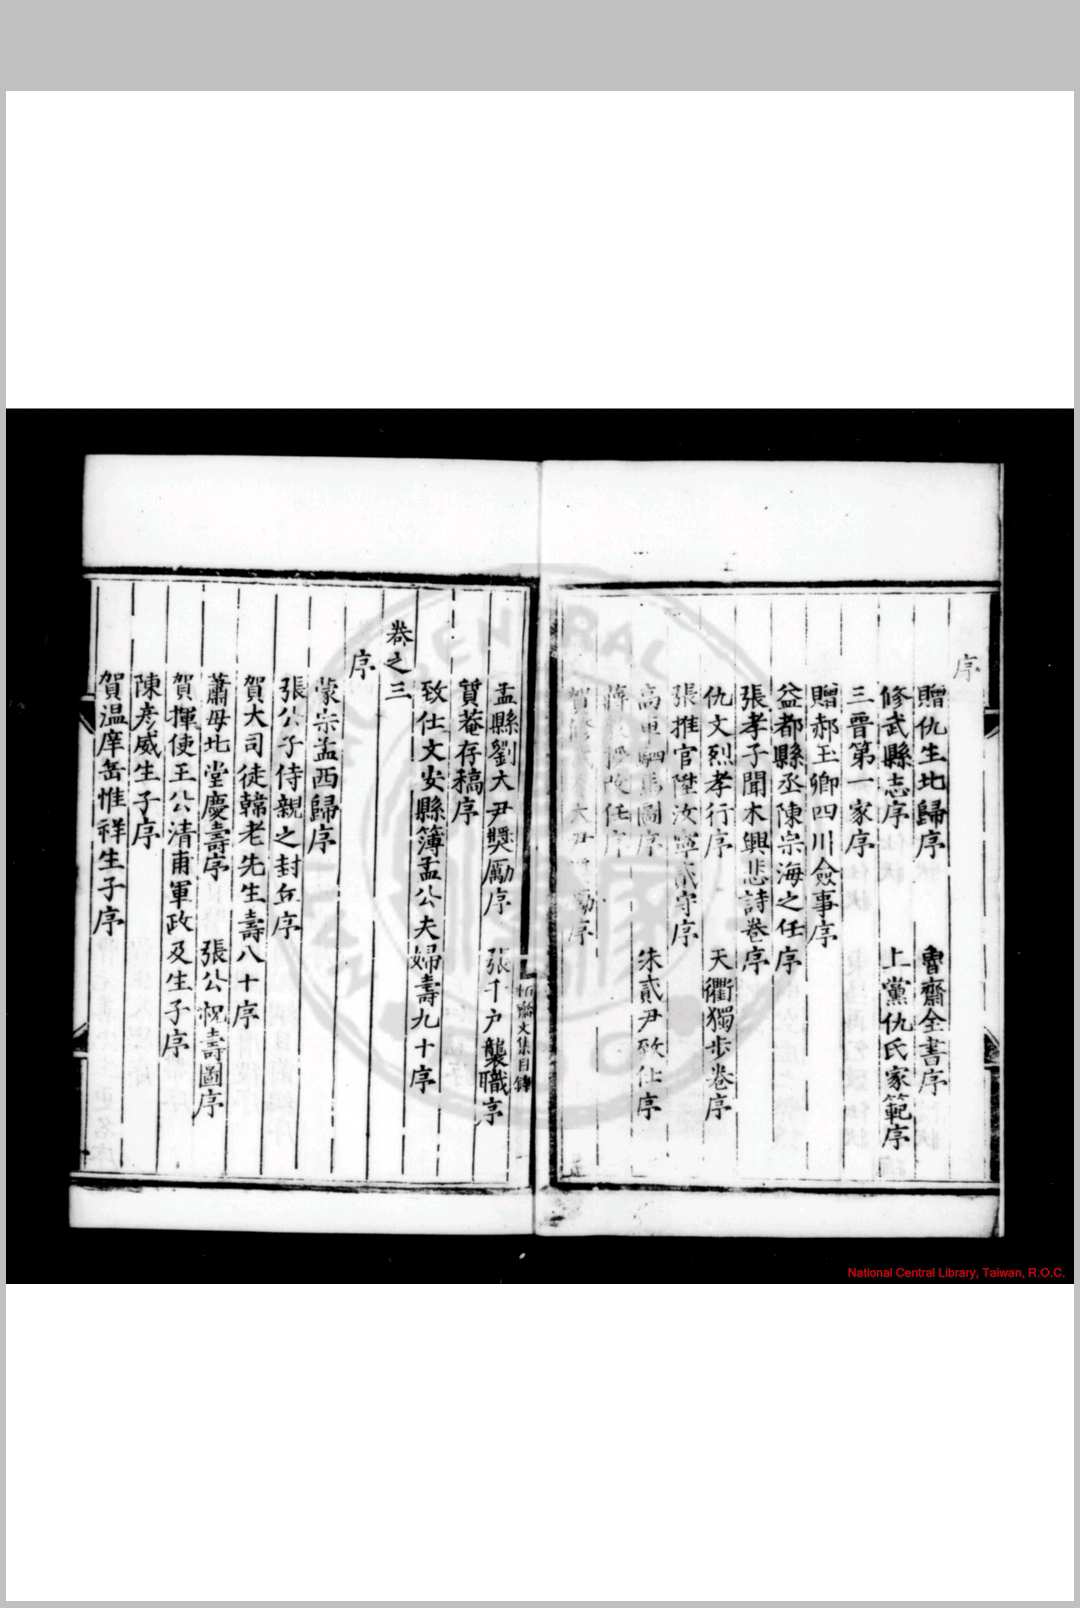 序
贈仇生北歸序　魯齋全書序
修武縣志序　上黨仇氏家範序
三晉第一家序
贈郝玉卿四川僉事序
益都縣丞陳宗海之任序
張孝子聞木興悲詩卷序
仇文烈孝行序　天衢獨步卷序
張推官陞汝寧貳守序
高車駟馬圖序　朱貳尹致仕序
任序
賀修武 大尹 勵序
孟縣劉大尹獎勵序　張千户襲職序
質菴存稿序
致仕文安縣簿孟公夫婦壽九十序
卷之三
序
蒙宗孟西歸序
張公子侍親之封丘序
賀大司徒韓老先生壽八十序
蕭母北堂慶壽序　張公祝壽圖序
賀揮使王公清甫軍政及生子序
陳彥威生子序
賀温庠岳惟祥生子序
齋文集目錄
CENTRAL
National Central Library, Taiwan, R.O.C.